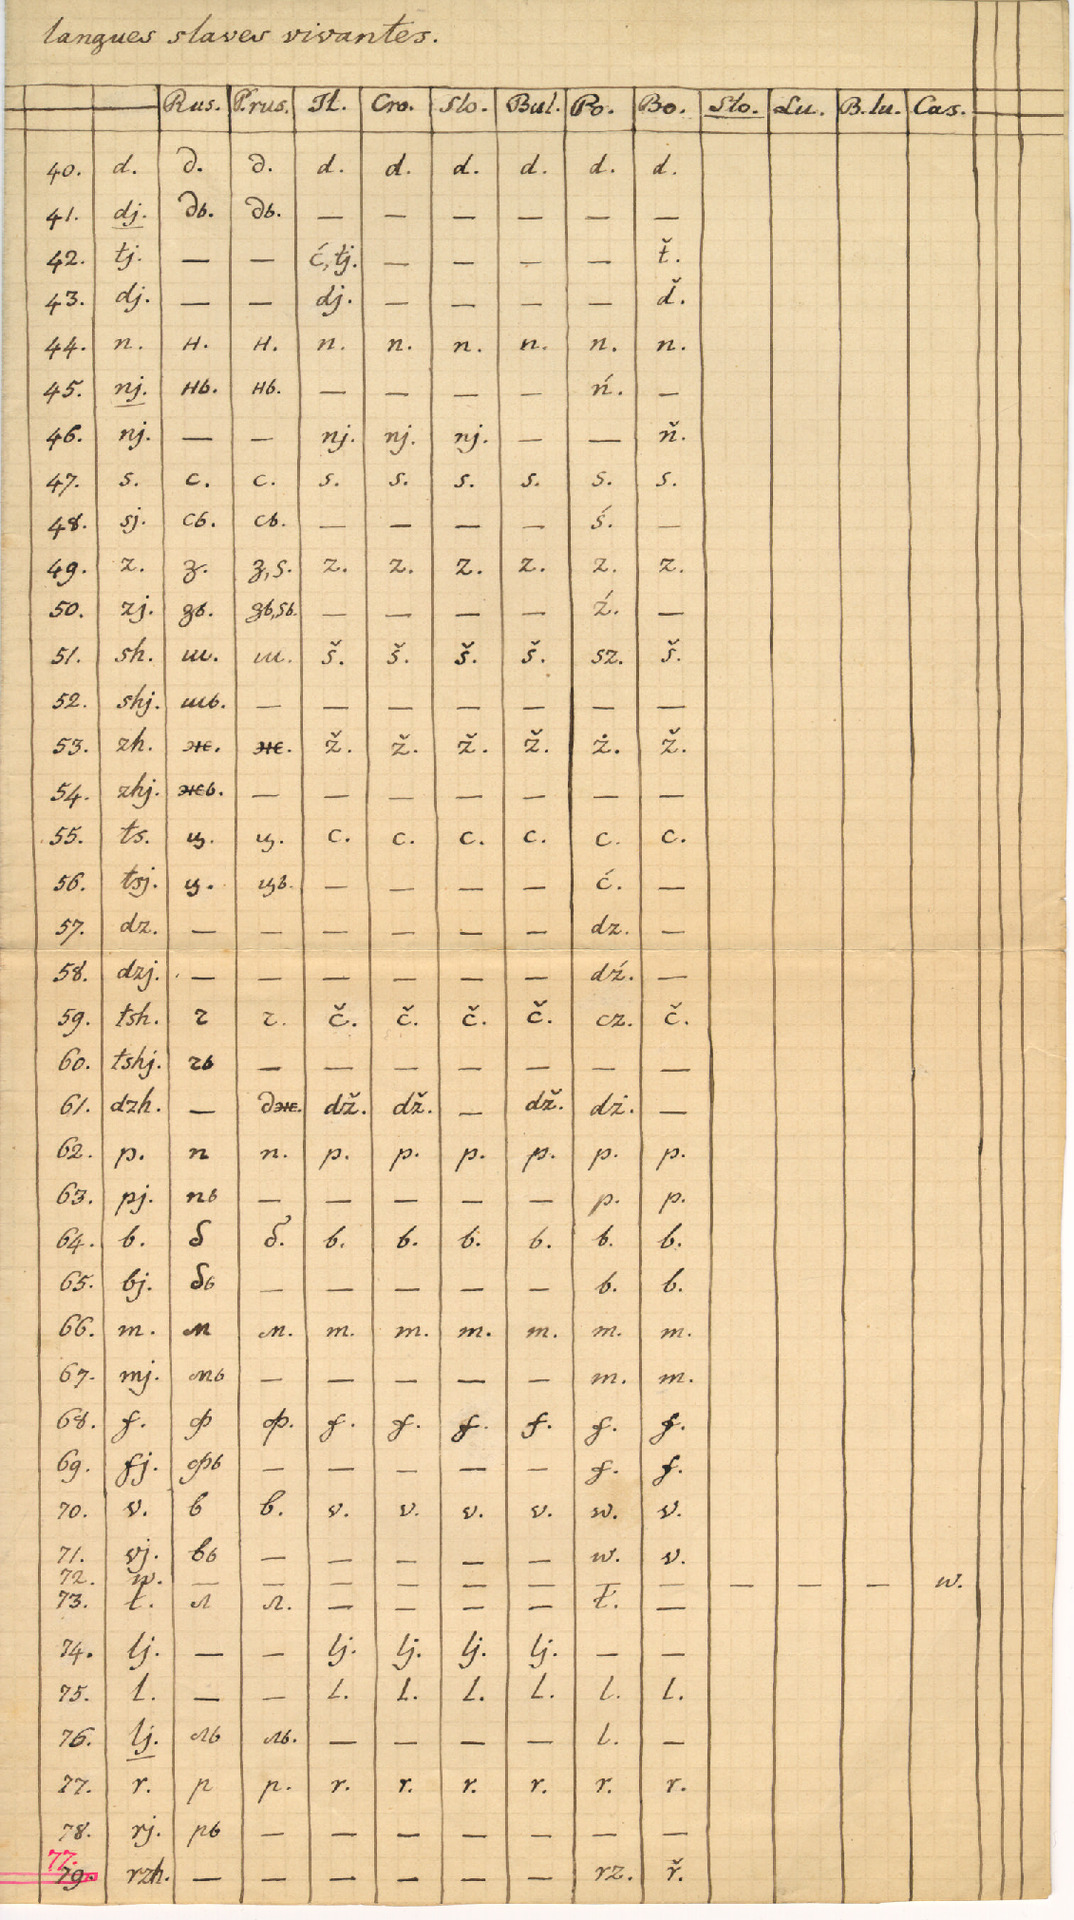 langues slaves vivantes.
Rus. P.rus. Il. Cro. Slo. Bul. Po. Bo. Slo. Lu. B.lu. Cas.
40. d. д. д. d. d. d. d. d. d.
41. dj. дь. дь. — — — — — —
42. tj. — — ć, tj. — — — — ť.
43. dj. — — dj. — — — — ď.
44. n. н. н. n. n. n. n. n. n.
45. nj. нь. нь. — — — — ń. —
46. nj. — — nj. nj. nj. — — ň.
47. s. с. с. s. s. s. s. s. s.
48. sj. сь. сь. — — — — ś. —
49. z. з. з, s. z. z. z. z. z. z.
50. zj. зь. зь, sь. — — — — ź. —
51. sh. ш. ш. š. š. š. š. sz. š.
52. shj. шь. — — — — — — —
53. zh. ж. ж. ž. ž. ž. ž. ż. ž.
54. zhj. жь. — — — — — — —
55. ts. ц. ц. c. c. c. c. c. c.
56. tsj. ц. ць. — — — — ć. —
57. dz. — — — — — — dz. —
58. dzj. — — — — — — dź. —
59. tsh. ч ч. č. č. č. č. cz. č.
60. tshj. чь — — — — — — —
61. dzh. — дж. dž. dž. — dž. dż. —
62. p. п п. p. p. p. p. p. p.
63. pj. пь — — — — — p. p.
64. b. б б. b. b. b. b. b. b.
65. bj. бь — — — — — b. b.
66. m. м м. m. m. m. m. m. m.
67. mj. мь — — — — — m. m.
68. f. ф ф. f. f. f. f. f. f.
69. fj. фь — — — — — f. f.
70. v. в в. v. v. v. v. w. v.
71. vj. вь — — — — — w. v.
72. w. — — — — — — — — — — — w.
73. ł. л л. — — — — ł. —
74. lj. — — lj. lj. lj. lj. — —
75. l. — — l. l. l. l. l. l.
76. lj. ль ль. — — — — l. —
77. r. р р. r. r. r. r. r. r.
78. rj. рь — — — — — — —
77.
79. rzh. — — — — — — rz. ř.